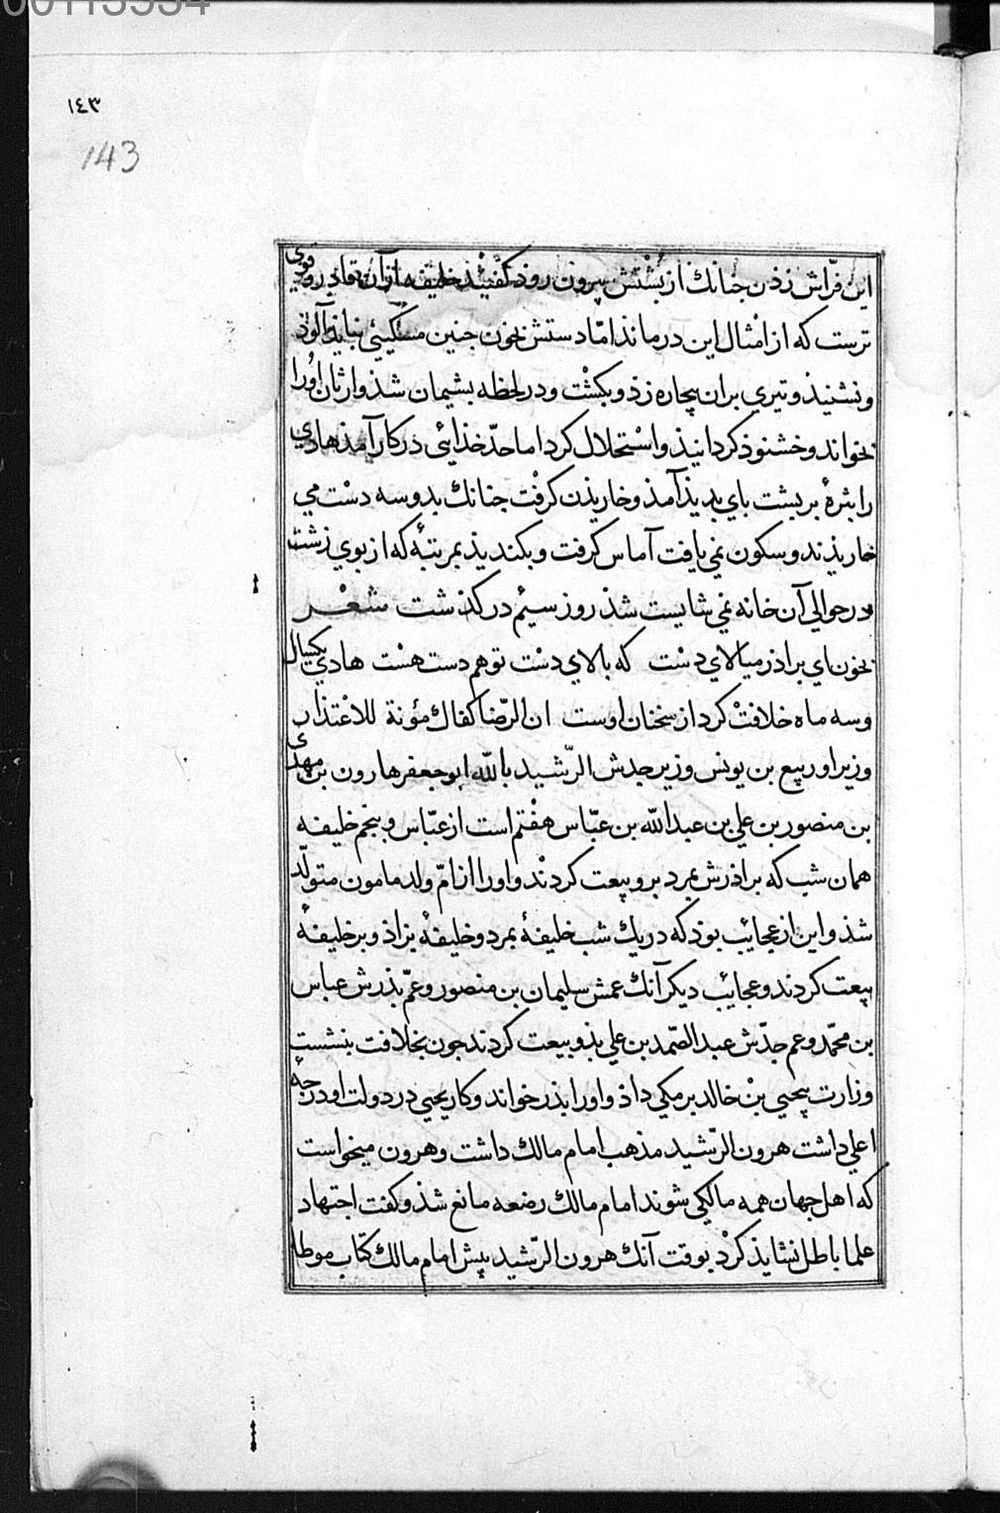 00113534
١٤٣
143
این فرّاش زذن جنانك از بشتش بیرون روذ کفتند خلیفه از آن قادر و قوی
ترست که از امثال این درماند امّا دستش بخون جنین مسکینی نباید آلوذ
ونشنیذ و تیری بران بیچاره زذ و بکشت ودر لحظه بشیمان شذ وارثان اورا
بخواند و خشنوذ کردانیذ واستحلال کرد اما حدّ خذائی در کار آمذ هادی
را بثرهٔ بر بشت بای بدیذ آمذ و خاریذن کرفت جنانك بدو سه دست می
خاریذند و سکون نمی یافت آماس کرفت و بکندیذ بمرتبهٔ که از بوی زشت
در حوالی آن خانه نمی شایست شذ روز سیّم در کذشت شعر
بخون ای براذر میالای دست که بالای دست تو هم دست هست هادی یکسال
وسه ماه خلافت کرد از سخنان اوست ان الرّضا کفاك مؤنة للاعتذار
وزیر او ربیع بن یونس وزیر جدش الرّشید بالله ابو جعفر هارون بن مهدی
بن منصور بن علی بن عبدالله بن عبّاس هفتم است از عبّاس و بنجم خلیفه
همان شب که براذرش بمرد برو بیعت کردند و اورا از امّ ولد مامون متولّد
شذ و این از عجایب بوذ که در یك شب خلیفهٔ بمرد و خلیفهٔ بزاذ و بر خلیفهٔ
بیعت کردند و عجایب دیکر آنك عمش سلیمان بن منصور و عمّ بذرش عباس
بن محمّد و عم جدّش عبد الصّمد بن علی بذو بیعت کردند جون بخلافت بنشست
وزارت بیحیی بن خالد برمکی داذ و اورا بذر خواند و کار یحیی در دولت او درجهٔ
اعلی داشت هرون الرّشید مذهب امام مالك داشت وهرون میخواست
که اهل جهان همه مالکی شوند امام مالك رضعه مانع شذ و کفت اجتهاد
علما باطل نشایذ کرد بوقت آنك هرون الرّشید بیش امام مالك کتاب موطا